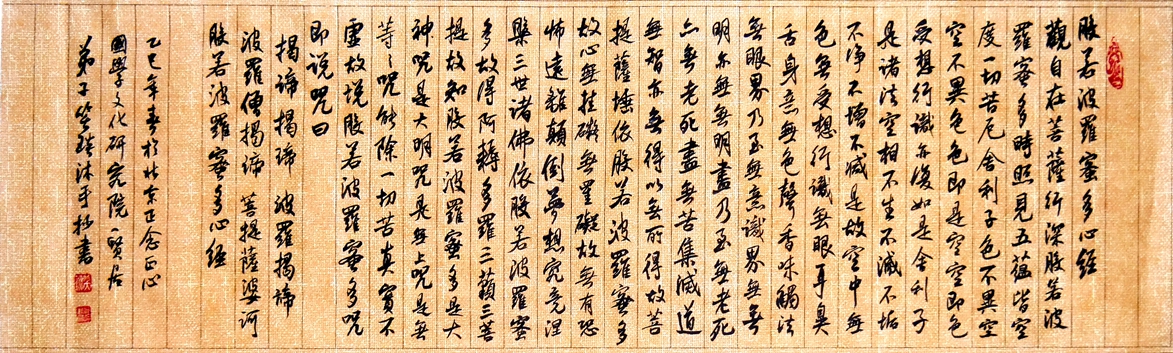 般若波羅蜜多心經
觀自在菩薩行深般若波
羅蜜多時照見五蘊皆空
度一切苦厄舍利子色不異空
空不異色色即是空空即色
受想行識亦復如是舍利子
是諸法空相不生不滅不垢
不淨不增不減是故空中無
色無受想行識無眼耳鼻
舌身意無色聲香味觸法
無眼界乃至無意識界無無
明亦無無明盡乃至無老死
亦無老死盡無苦集滅道
無智亦無得以無所得故菩
提薩埵依般若波羅蜜多
故心無挂礙無罣礙故無有恐
怖遠離顛倒夢想究竟涅
槃三世諸佛依般若波羅蜜
多故得阿耨多羅三藐三菩
提故知般若波羅蜜多是大
神咒是大明咒是無上咒是無
等々咒能除一切苦真實不
虛故說般若波羅蜜多咒
即說咒曰
揭諦揭諦 波羅揭諦
波羅僧揭諦 菩提薩婆訶
般若波羅蜜多心經
乙巳年春於北京正念正心
國學文化研究院一賢居
弟子 沐手抄書